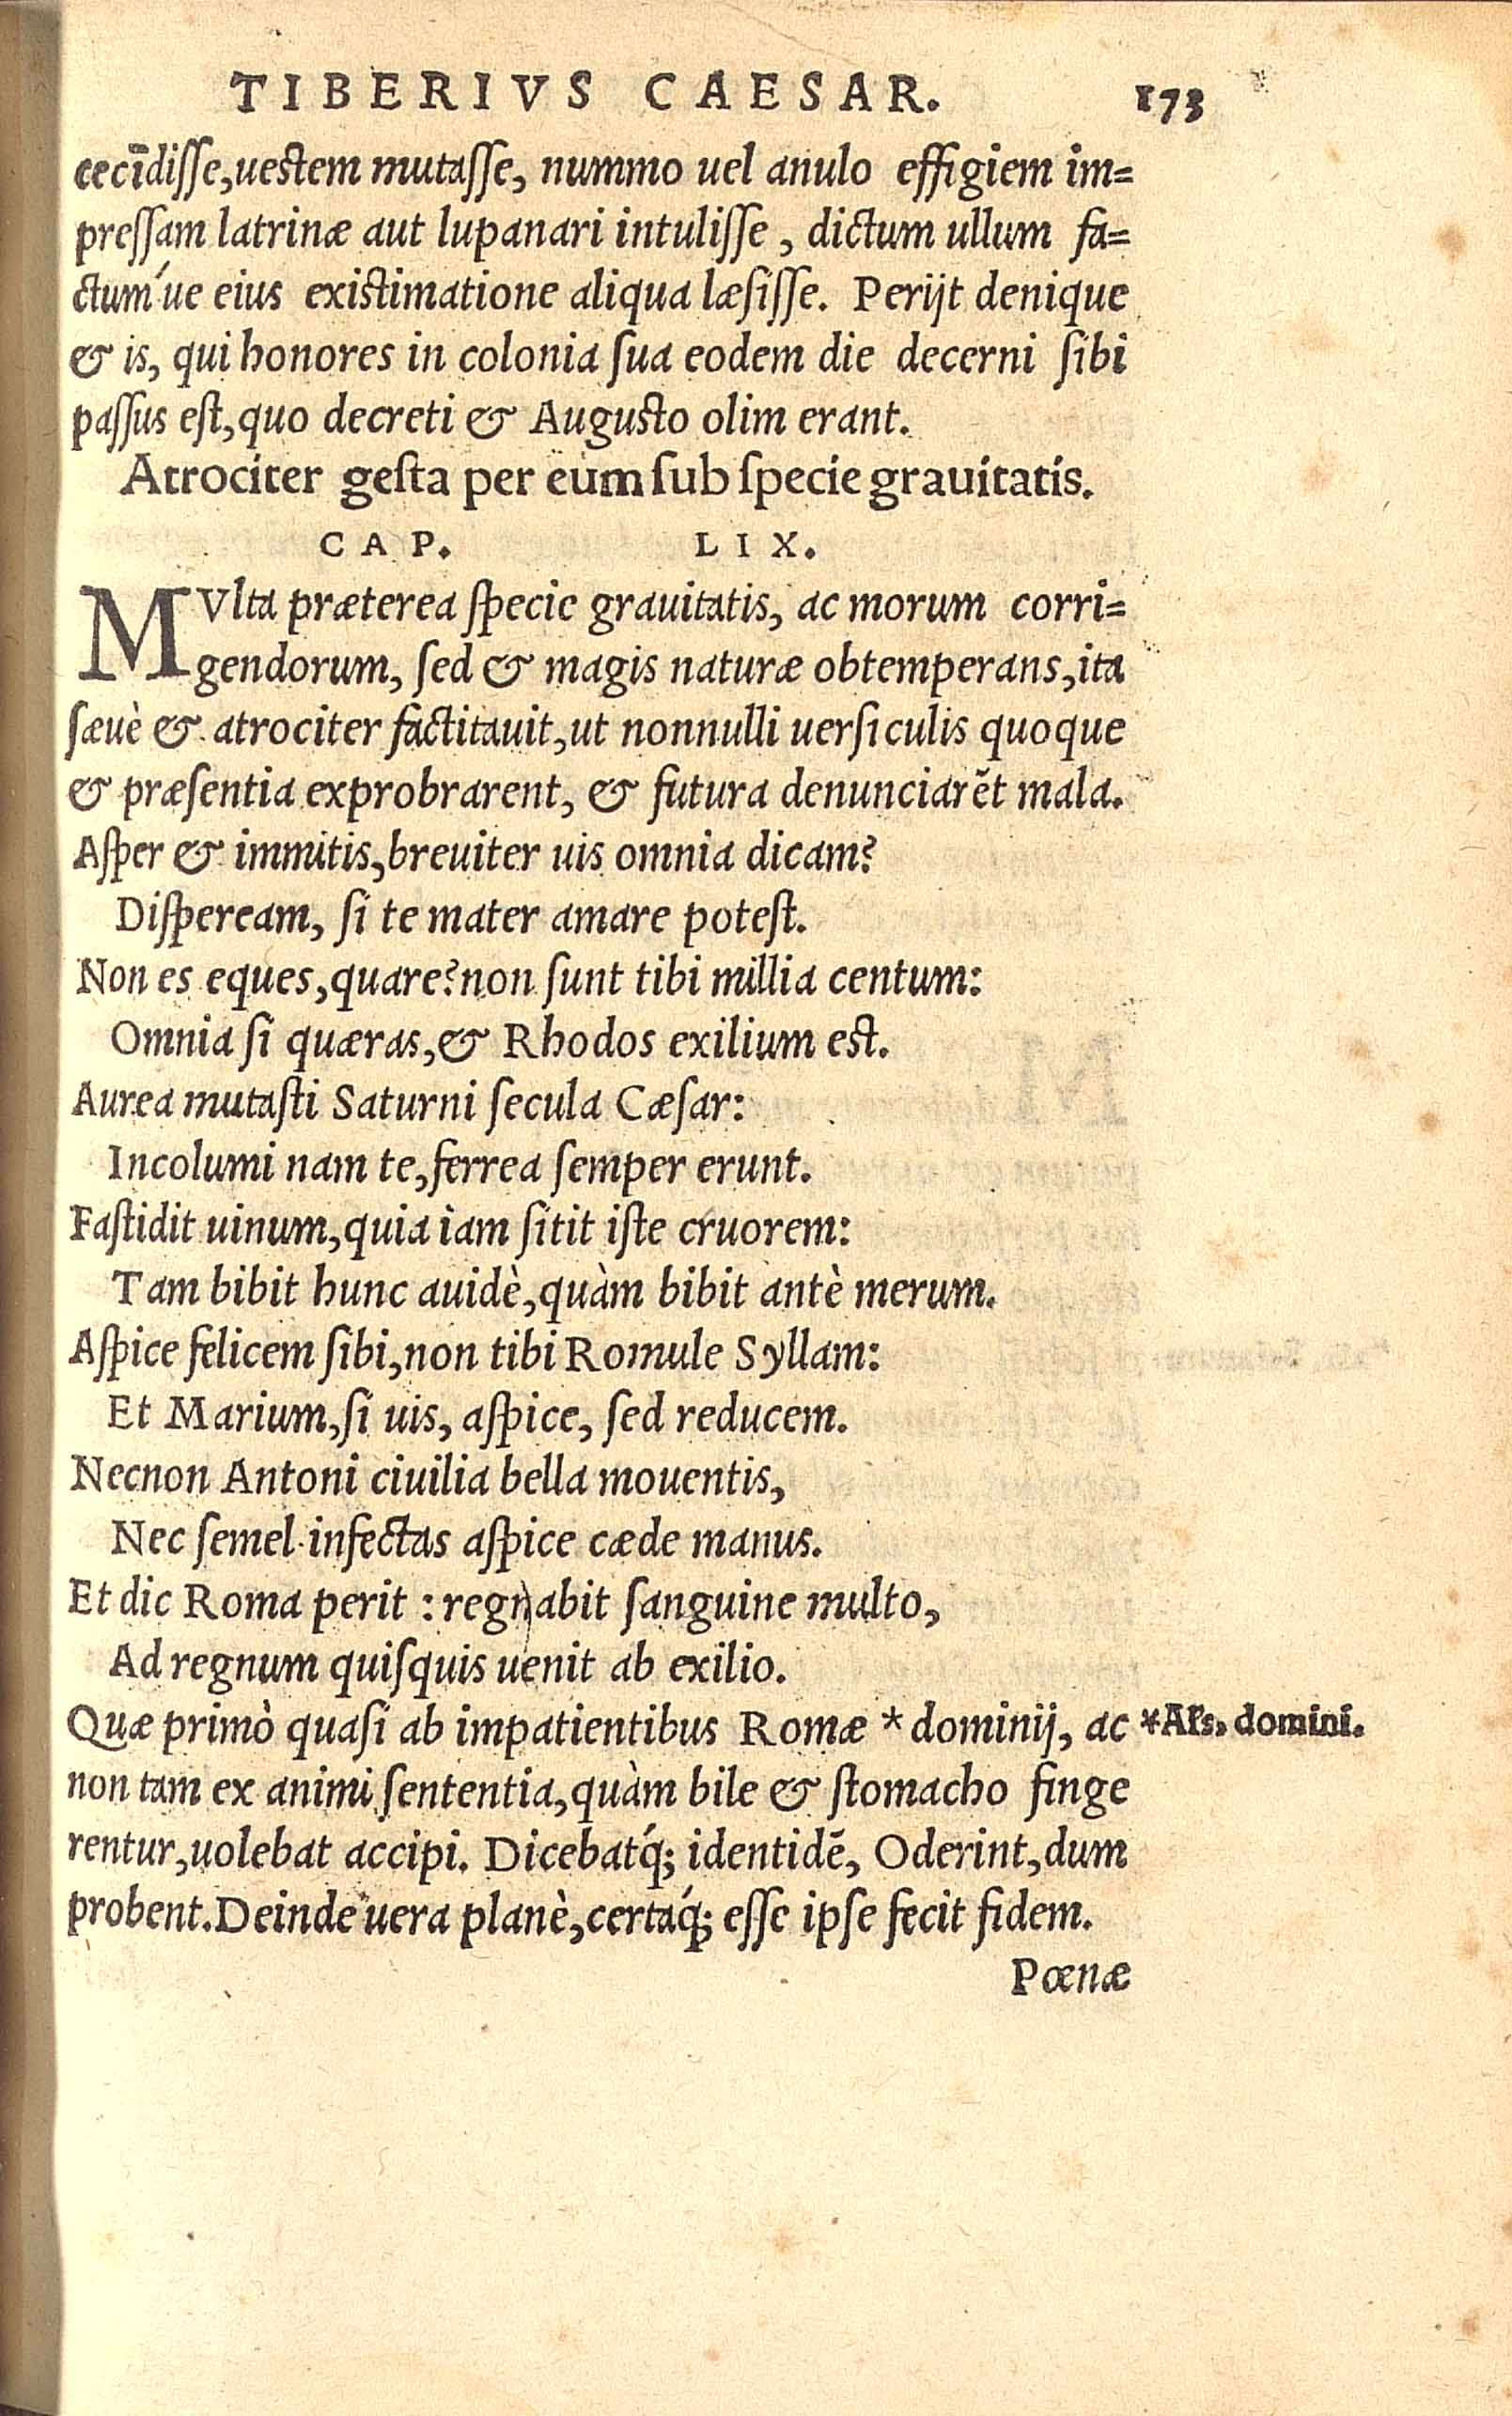 TIBERIVS CAESAR. 173
cecīdisse, uestem mutasse, nummo uel anulo effigiem im=
pressam latrinæ aut lupanari intulisse, dictum ullum fa=
ctum´ue eius existimatione aliqua læsisse. Perijt denique
& is, qui honores in colonia sua eodem die decerni sibi
passus est, quo decreti & Augusto olim erant.
Atrociter gesta per eum sub specie grauitatis.
CAP. LIX.
MVlta præterea specie grauitatis, ac morum corri=
gendorum, sed & magis naturæ obtemperans, ita
sæuè & atrociter factitauit, ut nonnulli uersiculis quoque
& præsentia exprobrarent, & futura denunciarēt mala.
Asper & immitis, breuiter uis omnia dicam?
Dispeream, si te mater amare potest.
Non es eques, quare? non sunt tibi millia centum:
Omnia si quæras, & Rhodos exilium est.
Aurea mutasti Saturni secula Cæsar:
Incolumi nam te, ferrea semper erunt.
Fastidit uinum, quia iam sitit iste cruorem:
Tam bibit hunc auidè, quàm bibit antè merum.
Aspice felicem sibi, non tibi Romule Syllam:
Et Marium, si uis, aspice, sed reducem.
Necnon Antoni ciuilia bella mouentis,
Nec semel infectas aspice cæde manus.
Et dic Roma perit: regnabit sanguine multo,
Ad regnum quisquis uenit ab exilio.
Quæ primò quasi ab impatientibus Romæ * dominij, ac *Als. domini.
non tam ex animi sententia, quàm bile & stomacho finge
rentur, uolebat accipi. Dicebat´q; identidē, Oderint, dum
probent. Deinde uera planè, certa´q; esse ipse fecit fidem.
Pœnæ